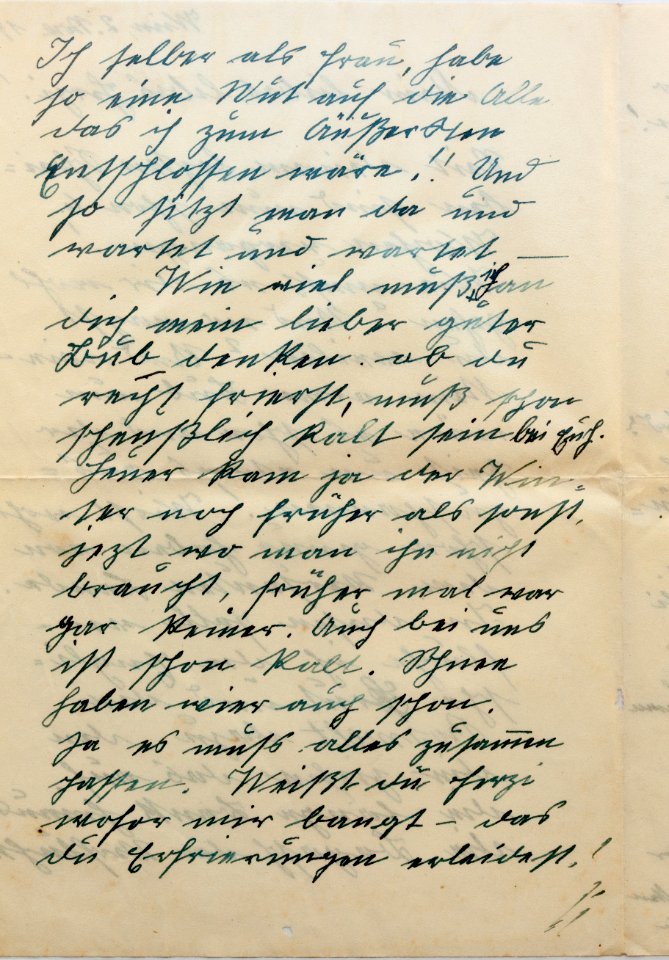 Ich selber als Frau, habe
so eine Wut auf die Alle
das ich zum Äußersten
Entschlossen wäre!! Und
so sitzt man da und
wartet und wartet —
Wie viel muß ich an
dich mein lieber guter
Bub denken. ob du
recht frierst, muß schon
scheußlich kalt sein bei Euch.
Heuer kam ja der Win=
ter noch früher als sonst,
jezt wo man ihn nicht
braucht, früher mal war
gar keiner. Auch bei uns
ist schon kalt. Schnee
haben wier auch schon.
Ja es muss alles zusammen
passen. Weißt du Herzi
wofor mir bangt – das
du Erfrierungen erleidest!